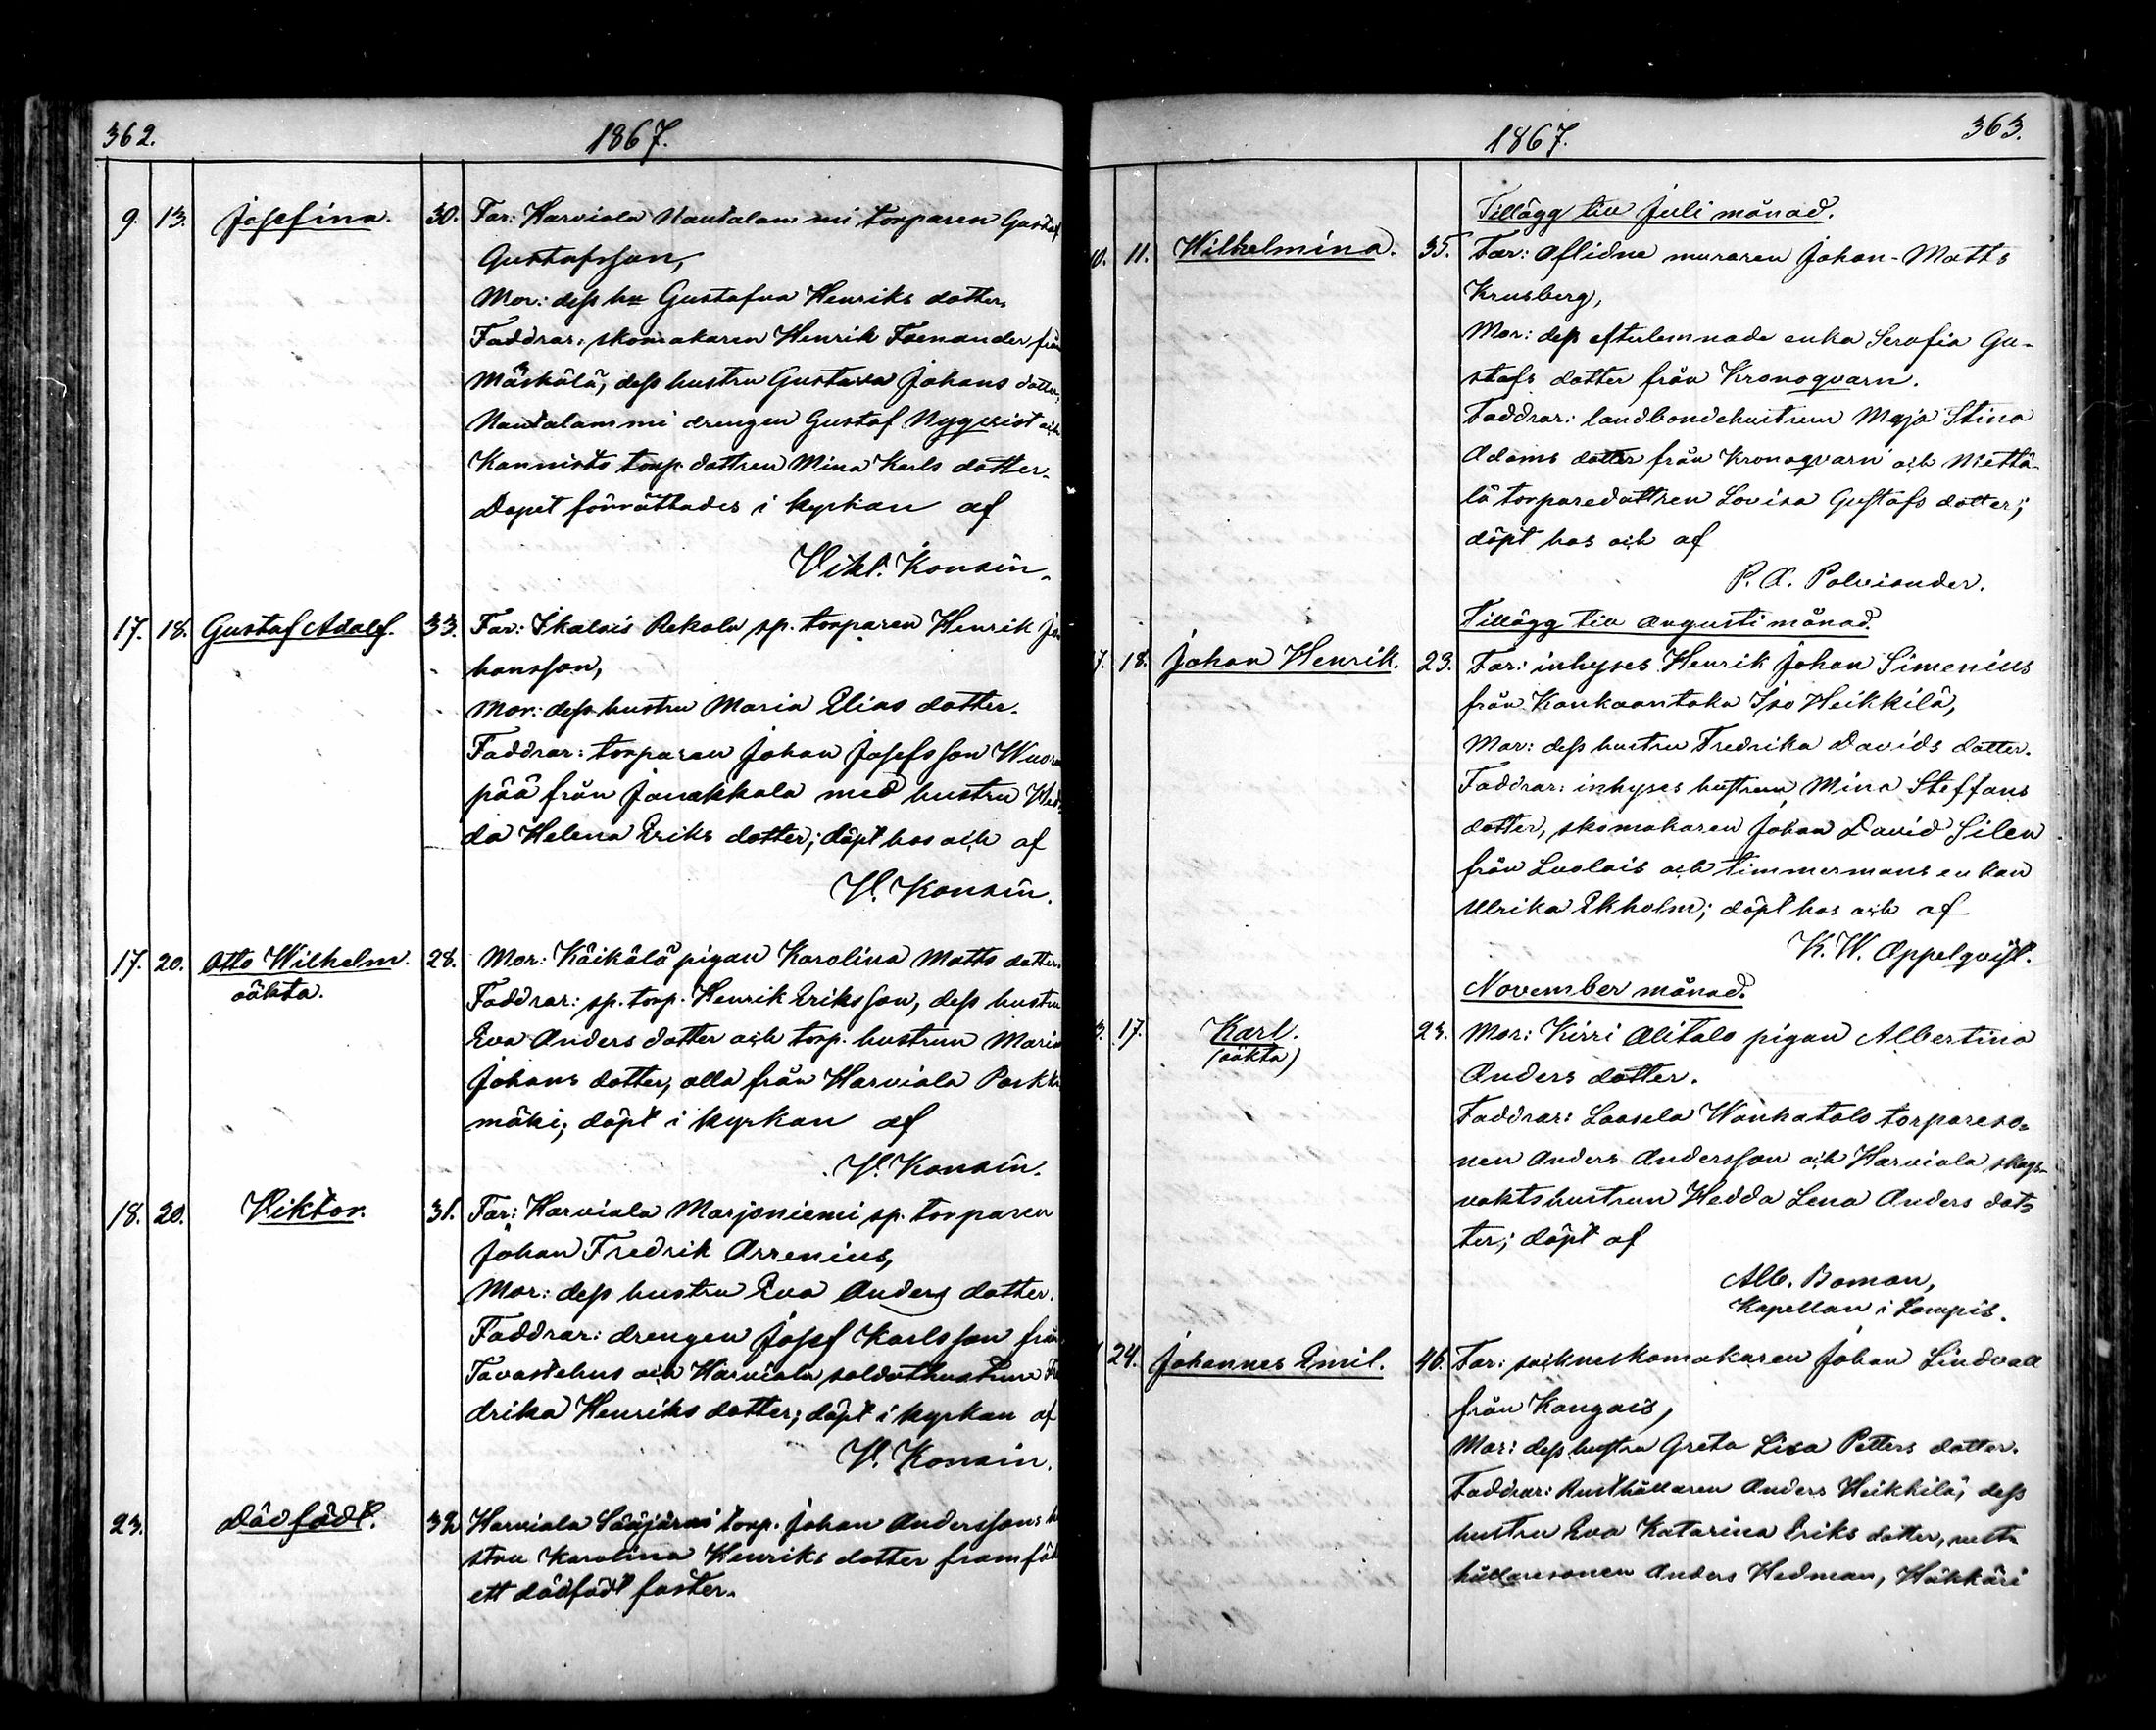 362.
1867.
9. 13. Josefina. 30. Far: Harviala Nautalammi torparen Gustaf
Gustafsson,
Mor: dess hu Gustafva Henriks dotter.
Faddrar: skomakaren Henrik Fornander från
Mäskälä, dess hustru Gustava Johans dotter,
Nautalammi drengen Gustaf Nyqvist och
Kannisto torp. dottren Mina Karls dotter.
Dopet förrättades i kyrkan af
Vikt. Konsin.
17. 18. Gustaf Adolf. 33. Far: Ikalois Rekola sp. torparen Henrik Jo
hansson,
Mor: dess hustru Maria Elias dotter.
Faddrar: torparen Johan Josefsson Wuoren
pää från Janakkala med hustru Hed
da Helena Eriks dotter; döpt hos och af
V. Konsin.
17. 20. Otto Wilhelm. 28. Mor: Käikälä pigan Karolina Matts dotter.
oäkta.
Faddrar: sp. torp. Henrik Eriksson, dess hustru
Eva Anders dotter och torp. hustrun Maria
Johans dotter, alla från Harviala Parkki
mäki; döpt i kyrkan af
V. Konsin.
18. 20. Viktor. 31. Far: Harviala Marjoniemi sp. torparen
Johan Fredrik Arrenius,
Mor: dess hustru Eva Anders dotter.
Faddrar: drengen Josef Karlsson från
Tavastehus och Harviala soldathustrun Fre
drika Henriks dotter; döpt i kyrkan af
V. Konsin.
23. Dödfödt. 32. Harviala torp. Johan Anderssons hu
stru Karolina Henriks dotter framfödt
ett dödfödt foster.
1867.
363.
Tillägg till Juli månad.
10. 11. Wilhelmina. 35. Far: Aflidne muraren Johan-Matts
Krusberg,
Mor: dess efterlemnade enka Serafia Gu-
stafs dotter från Kronoqvarn.
Faddrar: landbondehustrun Maja Stina
Adams dotter från Kronoqvarn och Mettä-
lä torparedottren Lovisa Gustafs dotter;
döpt hos och af
P. A. Polviander.
Tillägg till Augusti månad.
7. 18. Johan Henrik. 23. Far: inhyses Henrik Johan Simenius
från Kankaantaka Iso Heikkilä,
Mor: dess hustru Fredrika Davids dotter.
Faddrar: inhyses hustrun Mina Steffans
dotter, skomakaren Johan David Silen
från Luolais och timmermans enkan
Ulrika Ekholm; döpt hos och af
K. W. Appelqvist.
November månad.
3. 17. Karl. 23. Mor: Kirri Alitalo pigan Albertina
(oäkta)
Anders dotter.
Faddrar: Laasela Wanhatalo torpareso-
nen Anders Andersson och Harviala skogs-
vaktshustrun Hedda Lena Anders dot-
ter; döpt af
Alb. Boman,
Kapellan i Lampis.
24. Johannes Emil. 46. Far: sockneskomakaren Johan Lindvall
från Kangais,
Mor: dess hustru Greta Lisa Petters dotter.
Faddrar: Rusthållaren Anders Heikkilä, dess
hustru Eva Katarina Eriks dotter, rust-
hållaresonen Anders Hedman, Häkkäri